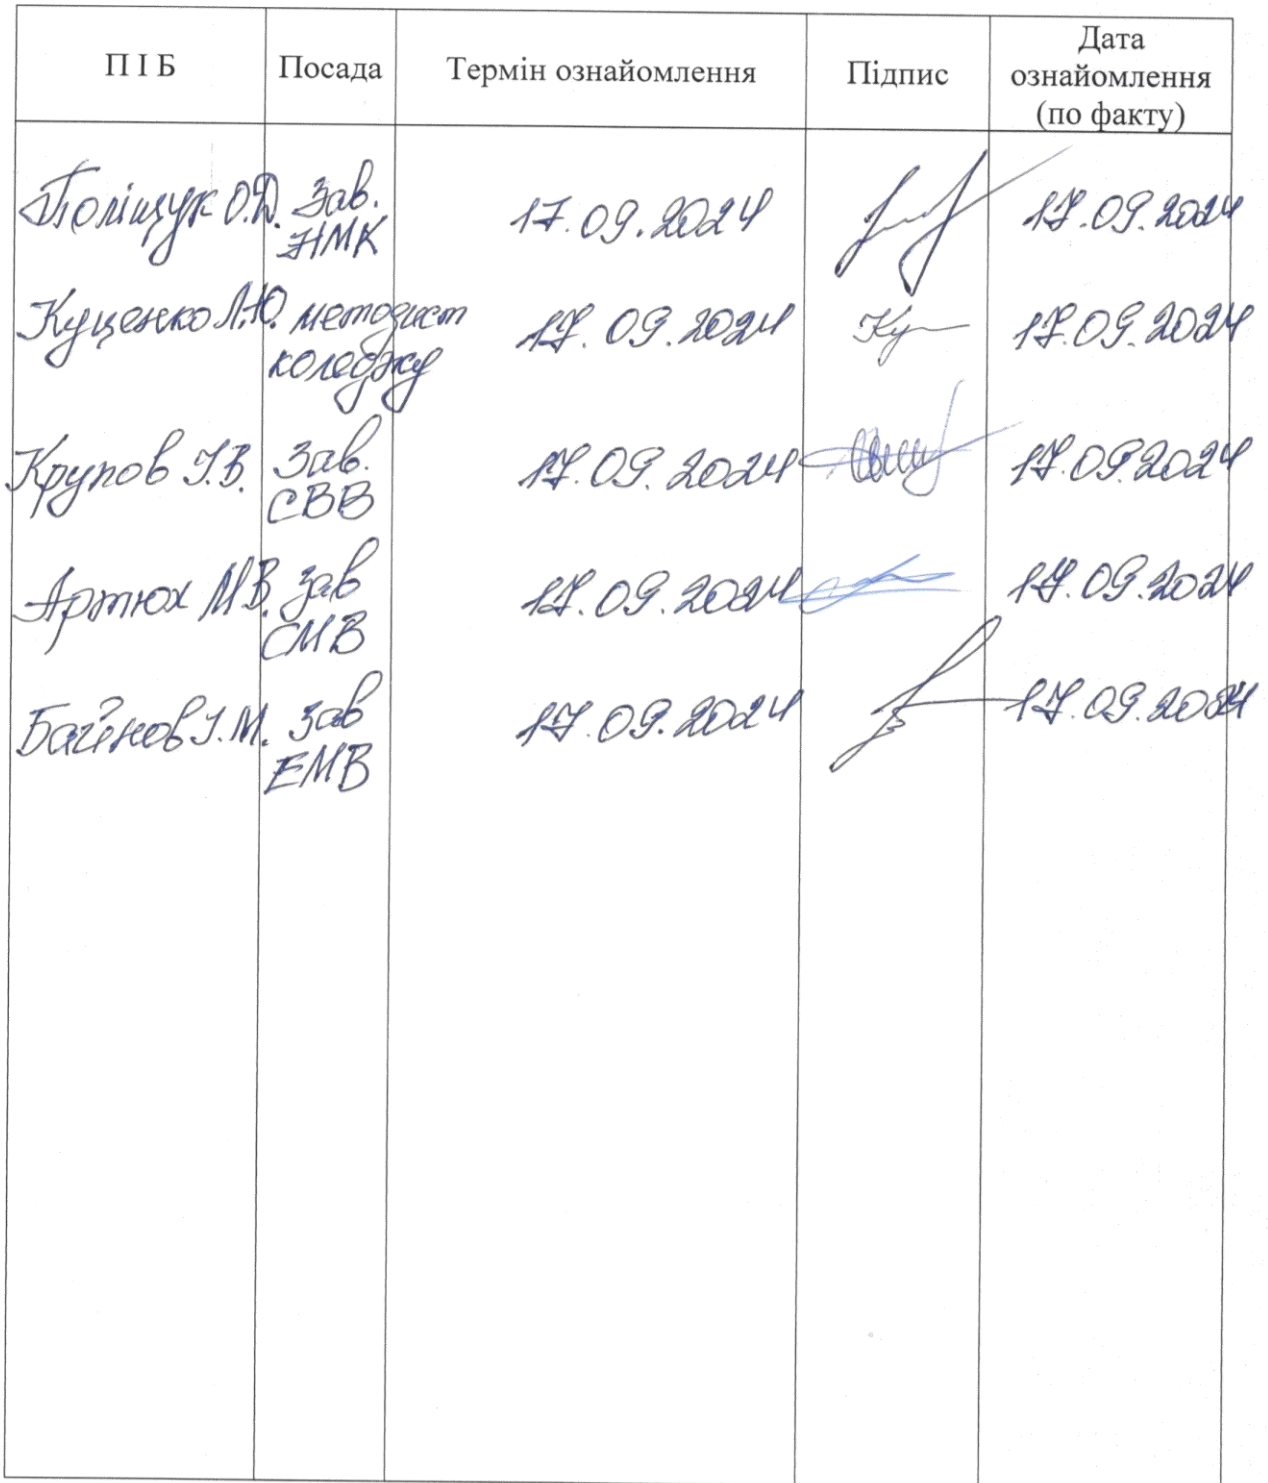 П І Б Посада Термін ознайомлення Підпис Дата ознайомлення (по факту)
Поліщук О.Д. Зав. 17.09.2024 17.09.2024
НМК
Куценко Л.Ю. методист 17.09.2024 17.09.2024
коледжу
Крупов І.В. Зав. 17.09.2024 17.09.2024
СВВ
Артюх М.В. Зав 17.09.2024 17.09.2024
СМВ
І.М. Зав 17.09.2024 17.09.2024
ЕМВ